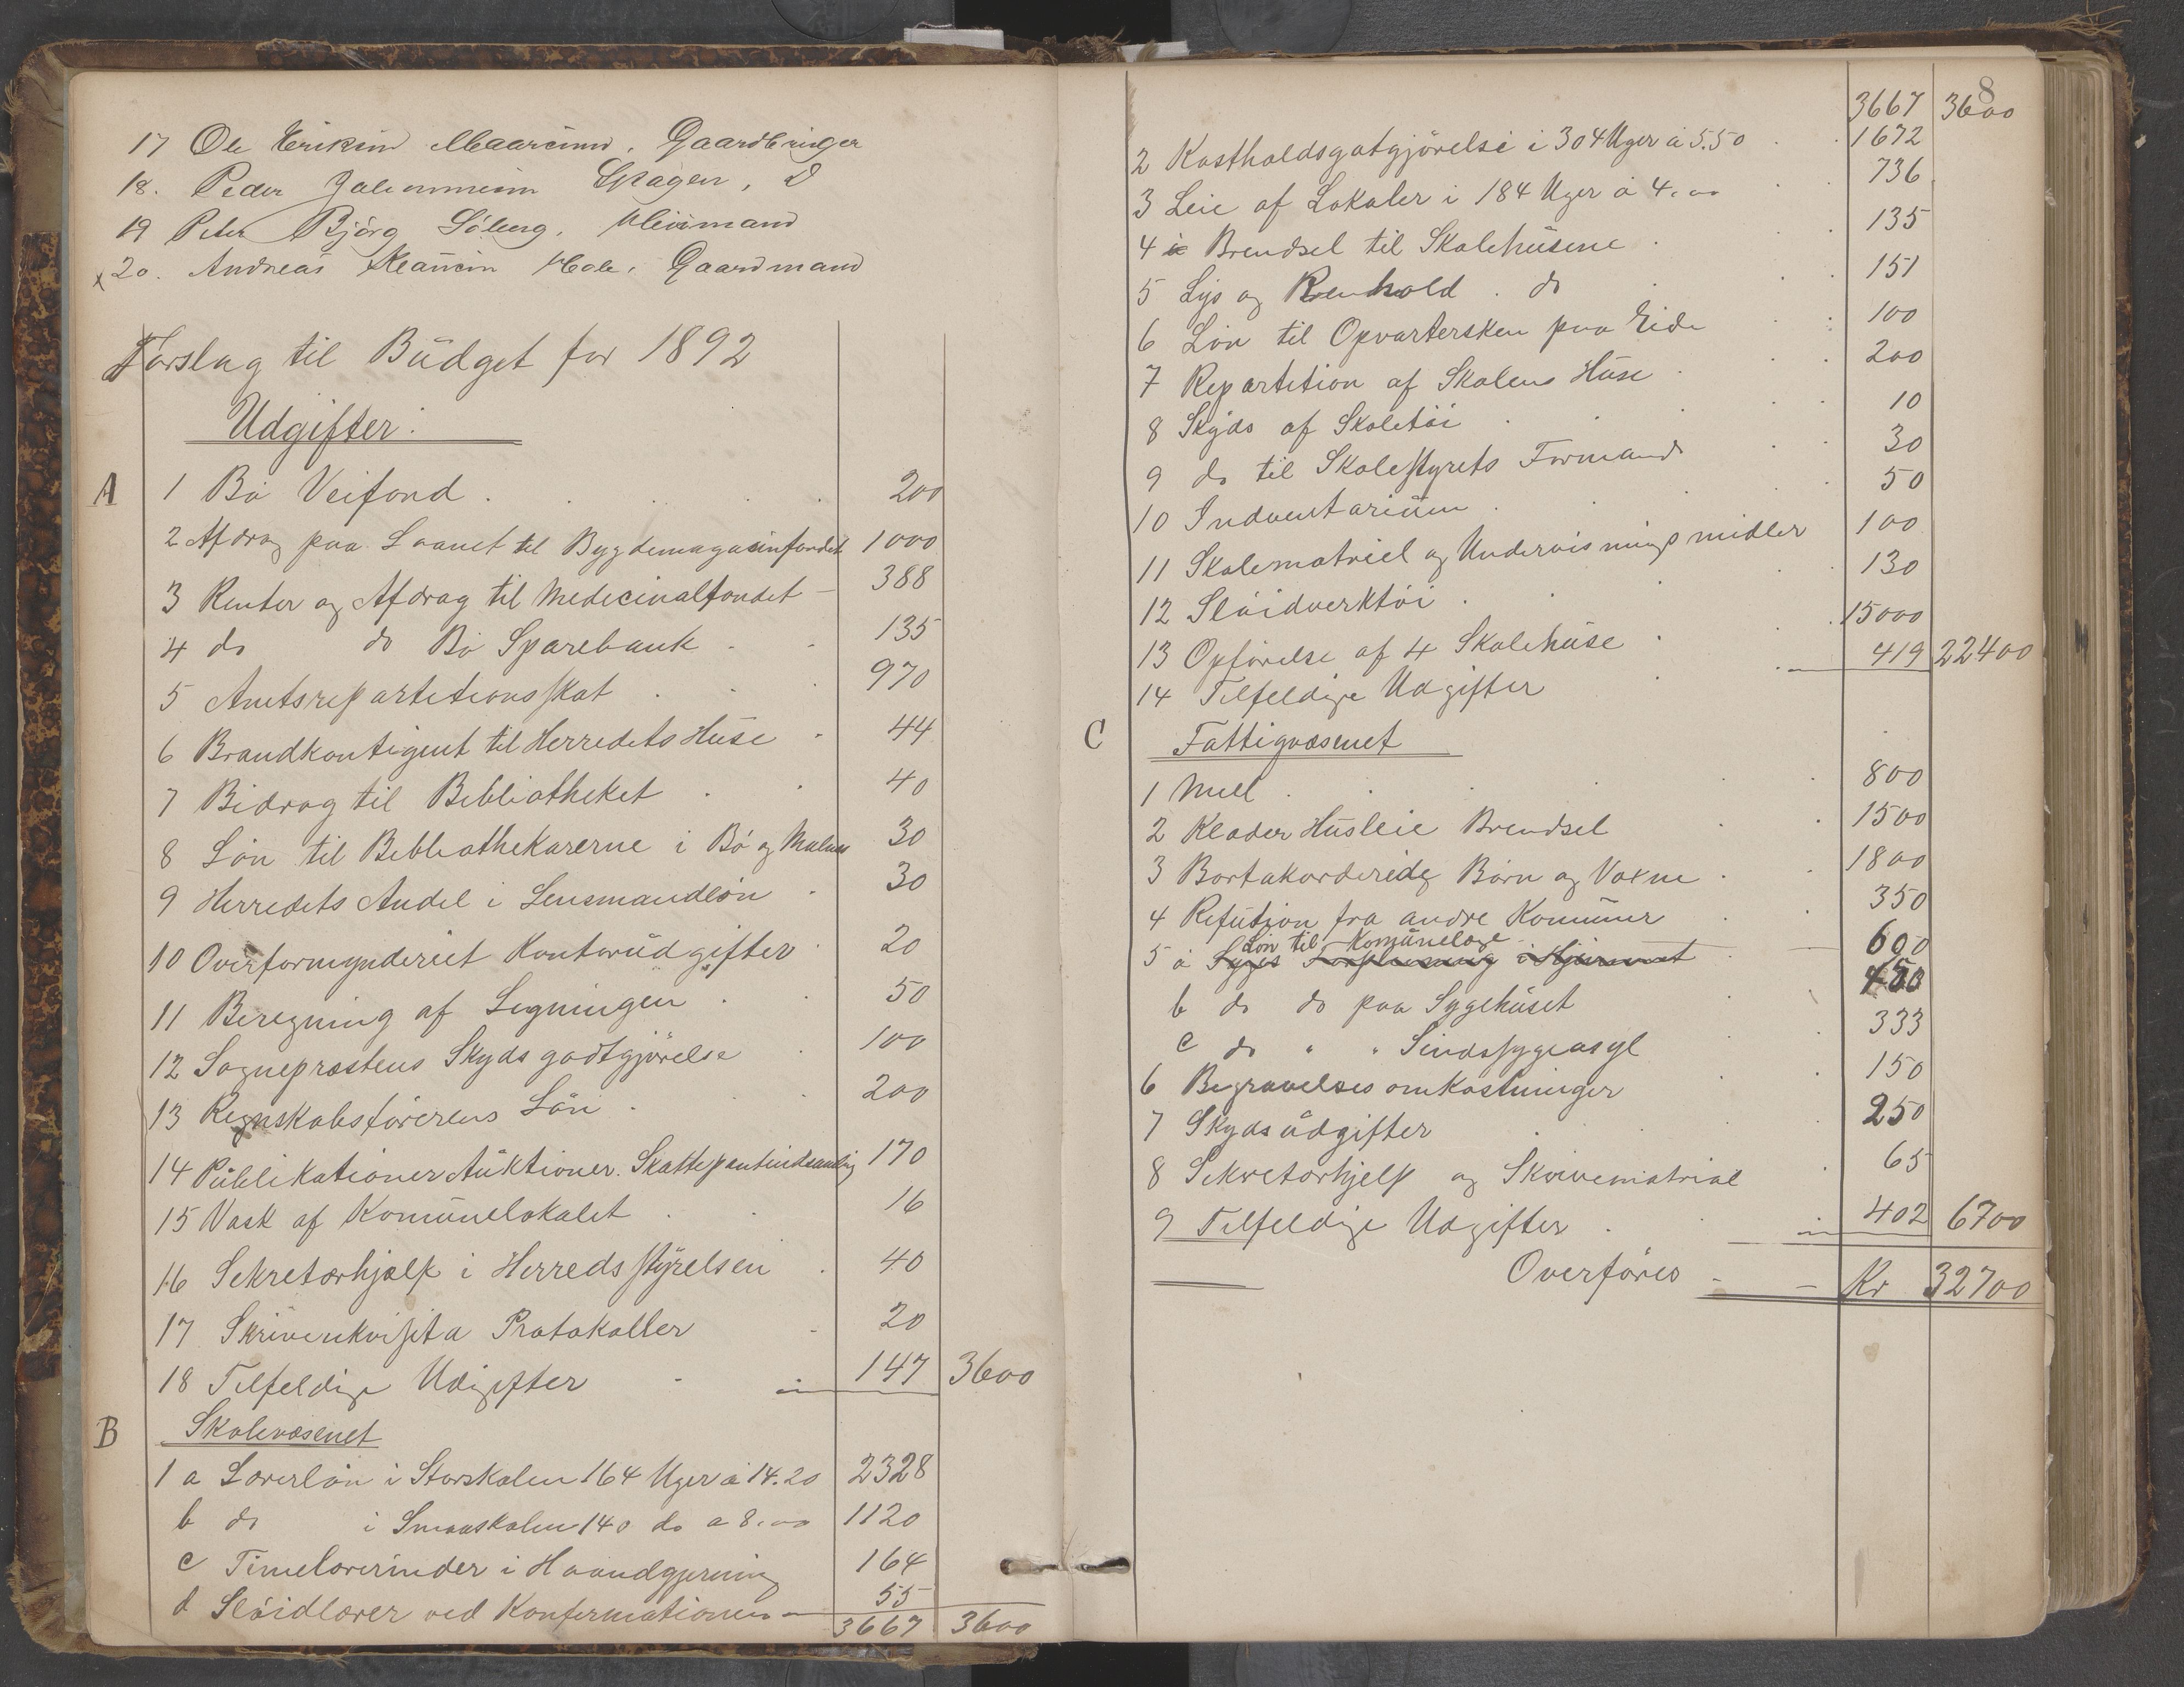 17 Ole Eriksen Gaardbruger
18. Peder Skagen, D
19 Peter Bjørg Søberg,
x 20. Andreas Hole, Gaardmand
Forslag til Büdget for 1892
Udgifter:
A 1 Bø Veifond . 200
2 Afdrag paa Laanet til Bygdemagasinfondet 1000
3 Renter og Afdrag til Medecinalfondet 388
4 do do Bø Sparebank 135
5 Amtsrepartitionsskat 970
6 Brandkontigent til Herredets Hüse 44
7 Bidrag til Bibliotheket 40
8 Løn til Bibliothekarerne i Bø og Malnes 30
9 Herredets Andel i Lensmandløn 30
10 Overformynderiet Kontorüdgifter 20
11 Beregning af Ligningen 50
12 Sognepræstens Skydsgodtgjørelse 100
13 Regnskabsførerens Løn 200
14 Püblikationer Aüktioner. Skattepantindsamlig 170
15 Vask af Komünelokalet 16
16 Sekretærhjælp i Herredsstyrelsen 40
17 Skriverekvisita Protokoller 20
18 Tilfeldige Udgifter 147 3600
B Skolevæsenet
1 a Lærerløn i Storskolen 164 Uger à 14.20 2328
b do i Smaaskolen 140 do a 8.00 1120
c Timelærerinder i Haandgjerning 164
d Sløidlærer ved Konfirmationen 55
3667 3600
8
3667 3600
2 Kostholdsgotgjörelse i 304 Uger à 5.50 1672
3 Leie af Lokaler i 184 Uger à 4.00 736
4 Brendsel til Skolehüsene 135
5 Lys og Renhold . do 151
6 Løn til Opvartersken paa Eide 100
7 Repartition af Skolens Hüse 200
8 Skyds af Skoletøi 10
9 do til Skolestyrets Formand 30
10 Indventariüm 50
11 Skolematriel og Undervisningsmidler 100
12 Sløidverktøi 130
13 Opførelse af 4 Skolehüse 15000
14 Tilfeldige Udgifter 419 22400
C Fattigvæsenet
1 Mell 800
2 Klæder Hüsleie Brendsel 1500
3 Bortakorderede Børn og Voxne 1800
4 Refüsion fra andre Komüner 350
Løn til Komünelæge
5 a Syges Forpleining i Hjemmet 600
b do do paa Sygehüset 450
c do " " Sindssygeasyl 333
6 Begravelsesomkostninger 150
7 Skydsüdgifter 250
8 Sekretærhjelp og Skrivematrial 65
9 Tilfeldige Udgifter 402 6700
Overføres Kr 32700